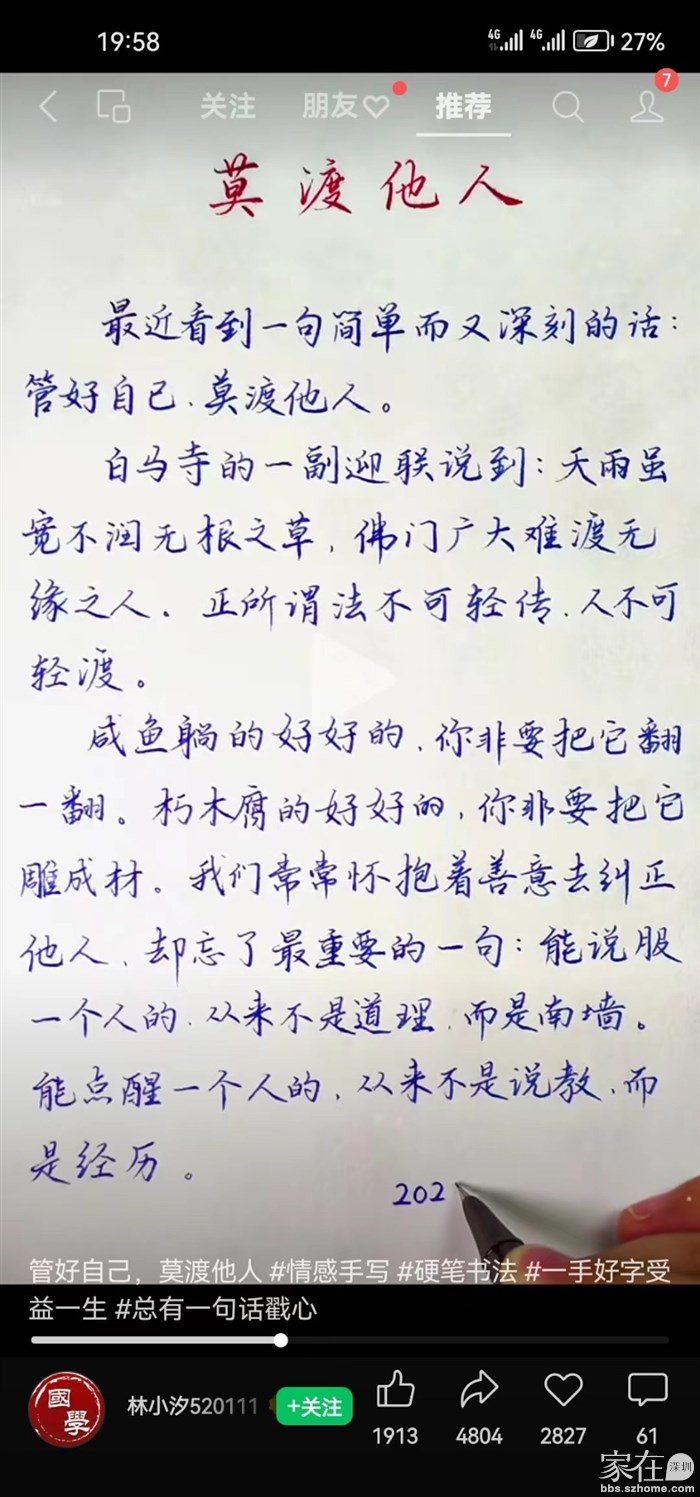 19:58
4G 4G 27%
7
关注 朋友 推荐
莫渡他人
最近看到一句简单而又深刻的话：
管好自己、莫渡他人。
白马寺的一副迎联说到：天雨虽
宽不润无根之草，佛门广大难渡无
缘之人。正所谓法不可轻传、人不可
轻渡。
咸鱼躺的好好的，你非要把它翻
一翻。朽木腐的好好的，你非要把它
雕成材。我们常常怀抱着善意去纠正
他人、却忘了最重要的一句：能说服
一个人的、从来不是道理、而是南墙。
能点醒一个人的，从来不是说教、而
是经历。
202
管好自己，莫渡他人 #情感手写 #硬笔书法 #一手好字受
益一生 #总有一句话戳心
國學
林小汐520111 +关注
1913 4804 2827 61
家在深圳
bbs.szhome.com